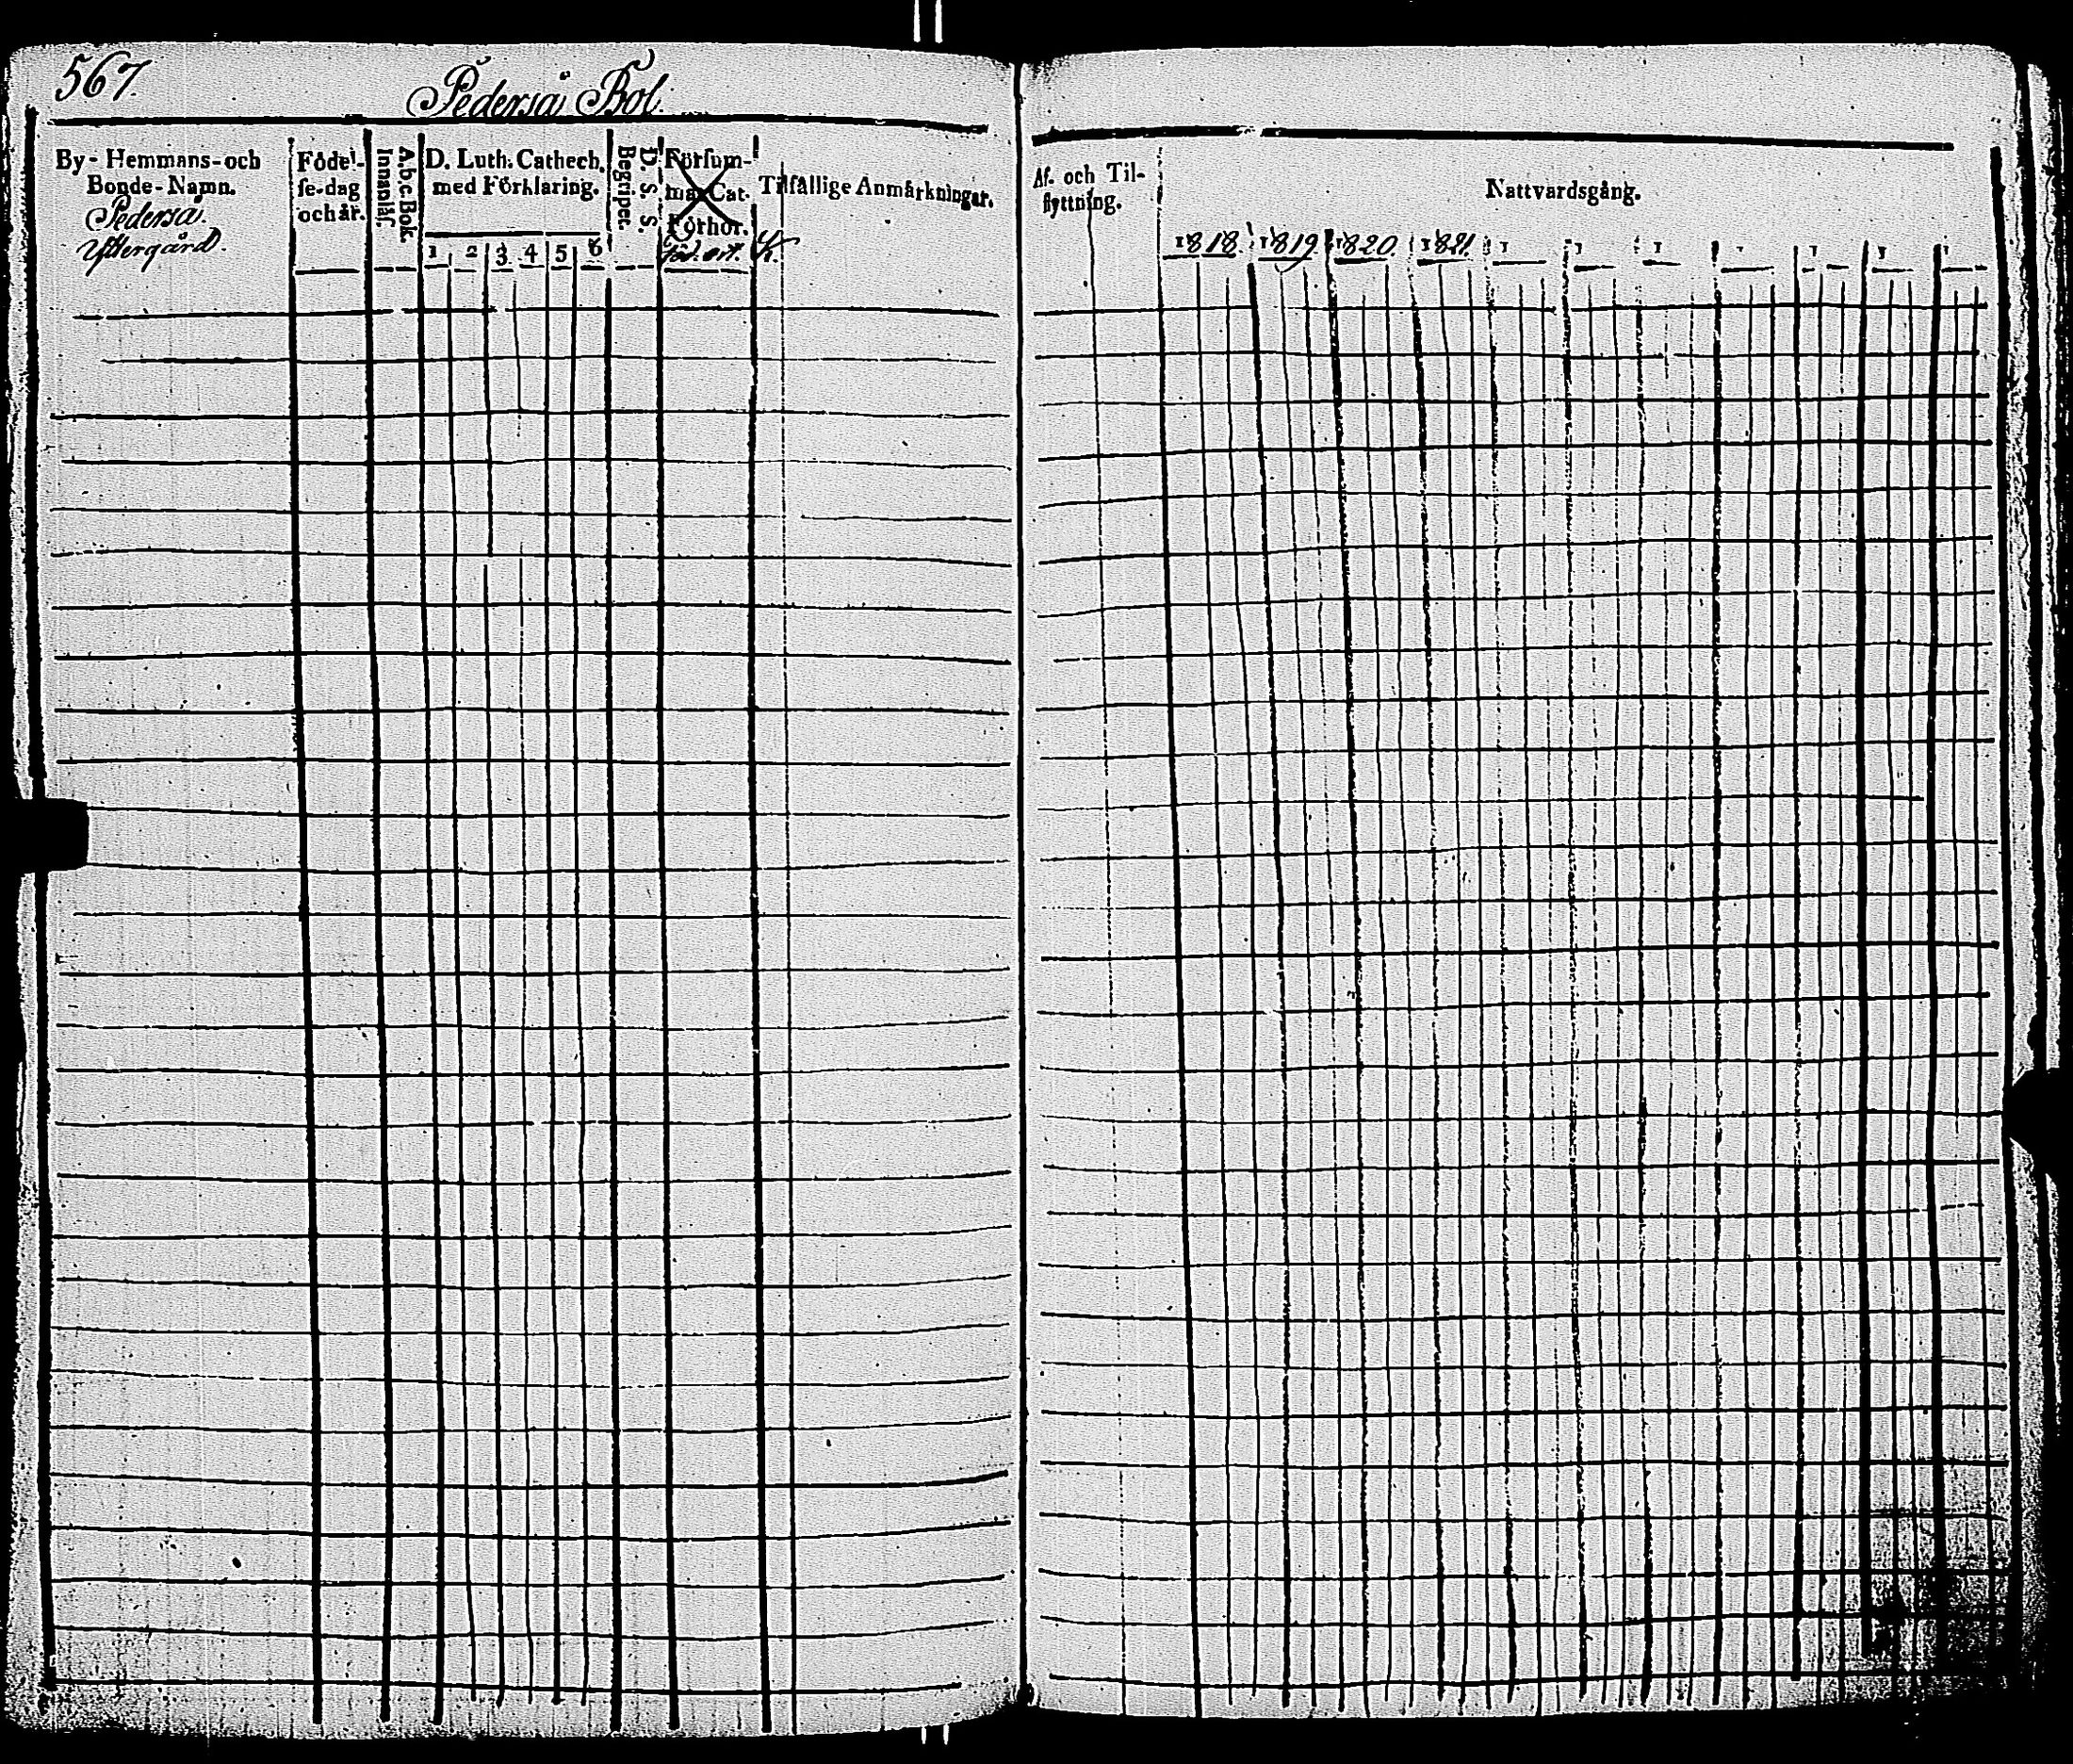 567.
Pederså Bol.
By- Hemmans- och
Bonde-Namn.
Pederså.
Yttergård.
Födel-
se-dag
och år.
A.b.c. Bok.
Innanläs.
D. Luth. Cathech.
med Förklaring.
1 2 3 4 5 6
D. S. S.
Begripet.
Försum-
ma Cat.
Förhör.
Föd. ort.
K.
Tilfällige Anmärkningar.
Af- och Til-
flyttning.
Nattvardsgång.
1818. 1819. 1820. 1821. 1 1 1 1 1 1 1